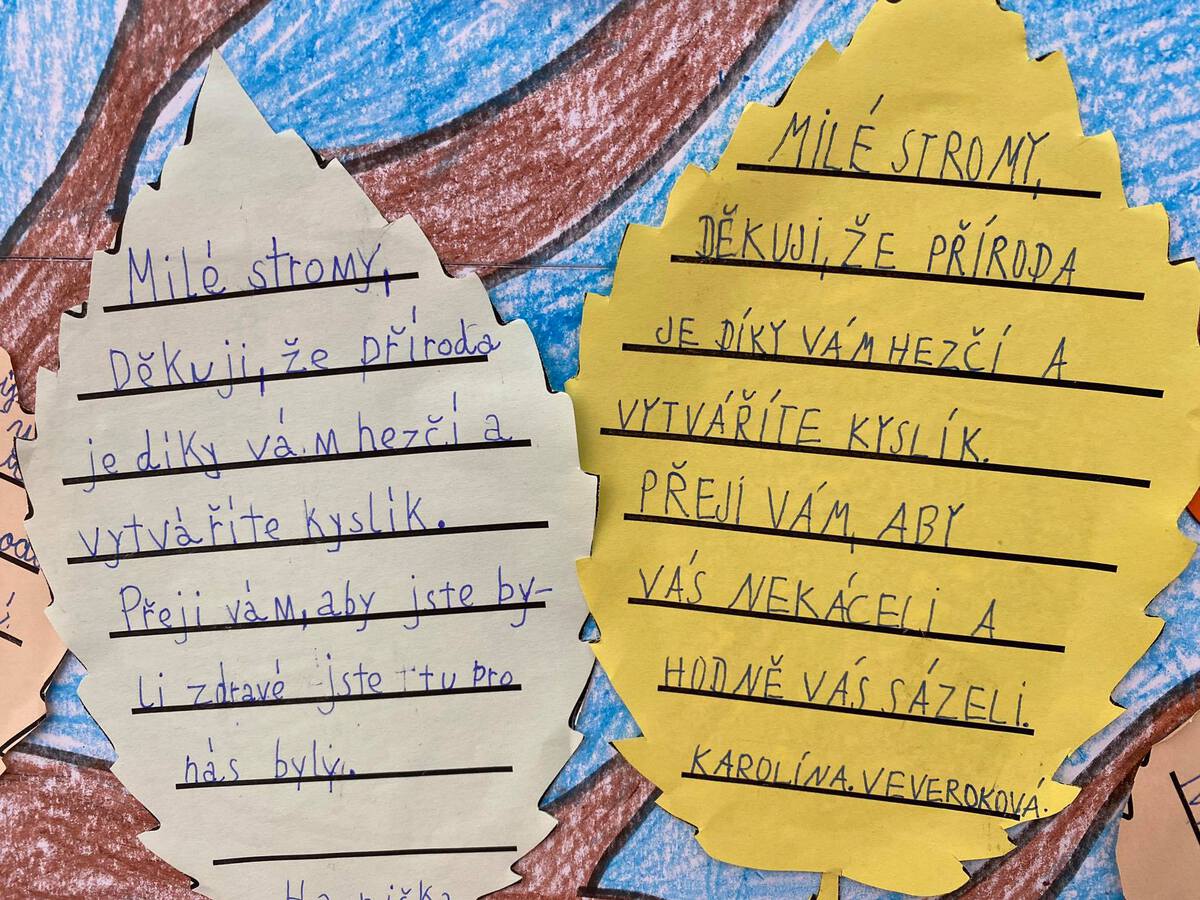 Milé stromy,
Děkuji, že příroda
je díky vám hezčí a
vytváříte kyslík.
Přeji vám, aby jste by-
li zdravé jste tu pro
nás byly.
MILÉ STROMY,
DĚKUJI, ŽE PŘÍRODA
JE DÍKY VÁM HEZČÍ A
VYTVÁŘÍTE KYSLÍK.
PŘEJI VÁM, ABY
VÁS NEKÁCELI A
HODNĚ VÁS SÁZELI.
KAROLÍNA.VEVEROKOVÁ.